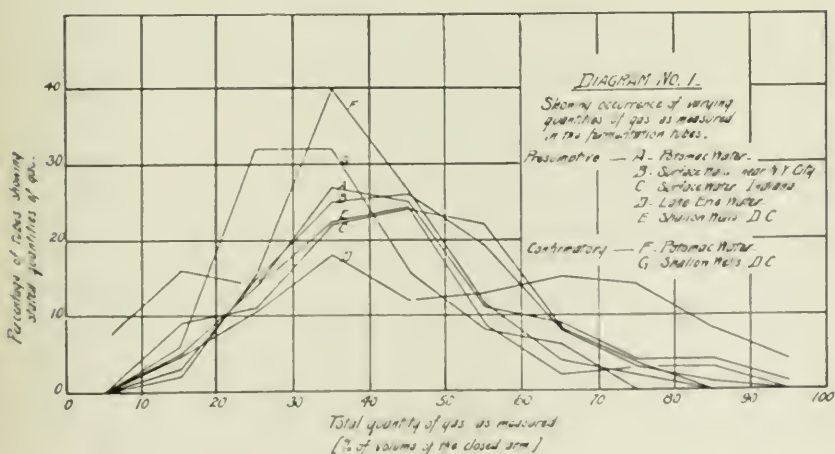 DIAGRAM NO. 1.
Showing occurrence of varying
quantities of gas as measured
in the fermentation tubes.
Presumptive — A - Potomac Water
B - Surface near N.Y. City
C - Surface Water Indiana
D - Lake Erie Water
E - Shallow Wells D.C
Confirmatory — F - Potomac Water
G - Shallow Wells D.C
Percentage of tubes showing
stated quantities of gas.
40
30
20
10
0
F
G
A
B
E
C
D
0 10 20 30 40 50 60 70 80 90 100
Total quantity of gas as measured
[% of volume of the closed arm]